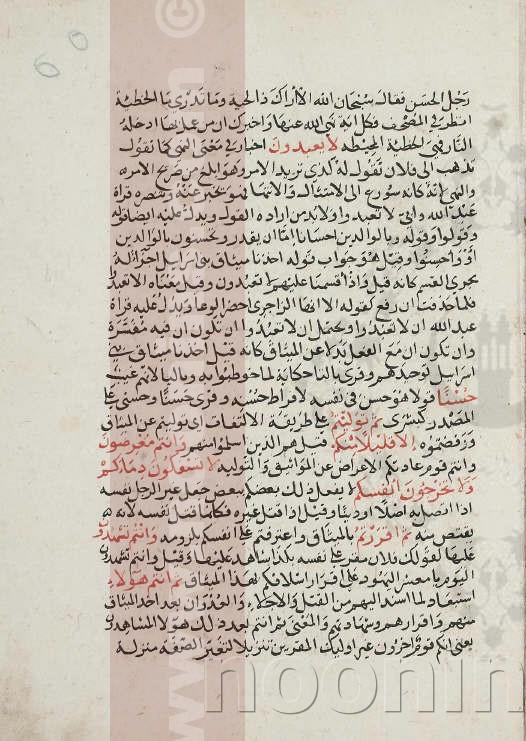 رجل الحسن فقال سبحان الله الا اراك ذا لحية وما تدرى ما الخطيئة
انظر في المصحف فكل اية نهى الله عنها واخبرك ان من عمل بها ادخله
النار فهى الخطيئة المحيطة لا يعبدون اخبار في معنى النهى كما تقول
تذهب الى فلان تقول له كذى تريد الامر وهو ابلغ من صريح الامر
والنهى لانه كانه سورع الى الامتثال والانتهاء فهو يخبر عنه وتنصره قراة
عبد الله وابى لا تعبدوا ولا بد من ارادة القول ويدل عليه ايضا قوله
وقولوا وقوله وبالوالدين احسانا اما ان يقدر وتحسنون بالوالدين
او واحسنوا وقيل هو جواب قوله اخذنا ميثاق بنى اسرايل اجراء له
مجرى القسم كانه قيل واذ اقسمنا عليهم لا تعبدون وقيل معناه الا تعبدوا
فلما حذفت ان رفع كقوله الا ايهذا الزاجرى احضر الوغا ويدل عليه قراة
عبد الله ان لا تعبدوا ويحتمل ان لا تعبدوا ان تكون ان فيه مفسرة
وان تكون ان مع الفعل بدلا عن الميثاق كانه قيل اخذنا ميثاق بنى
اسرايل توحيدهم وقرى بالتا حكاية لما خوطبوا به وباليا لانهم غيب
حسنا قولا هو حسن في نفسه لافراط حسنه وقرى حسنا وحسنى على
المصدر كبشرى ثم توليتم على طريقة الالتفات اى توليتم عن الميثاق
ورفضتموه الا قليلا منكم قيل هم الذين اسلموا منهم وانتم معرضون
وانتم قوم عادتكم الاعراض عن المواثيق والتولية لا تسفكون دماكم
ولا تخرجون انفسكم لا يفعل ذلك بعضكم ببعض جعل غير الرجل نفسه
اذا اتصل به اصلا او دينا وقيل اذا قتل غيره فكانما قتل نفسه لانه
يقتص منه ثم اقررتم بالميثاق واعترفتم على انفسكم بلزومه وانتم تشهدون
عليها كقولك فلان مقر على نفسه بكذا شاهد عليها وقيل وانتم تشهدون
اليوم يا معشر اليهود على اقرار اسلافكم بهذا الميثاق ثم انتم هولاء
استبعاد لما اسند اليهم من القتل والاجلاء والعدوان بعد اخذ الميثاق
منهم واقرارهم وشهادتهم والمعنى ثم انتم بعد ذلك هولا المشاهدون
يعنى انكم قوم اخرون غير اوليك المقرين تنزيلا لتغير الصفة منزلة
noonin